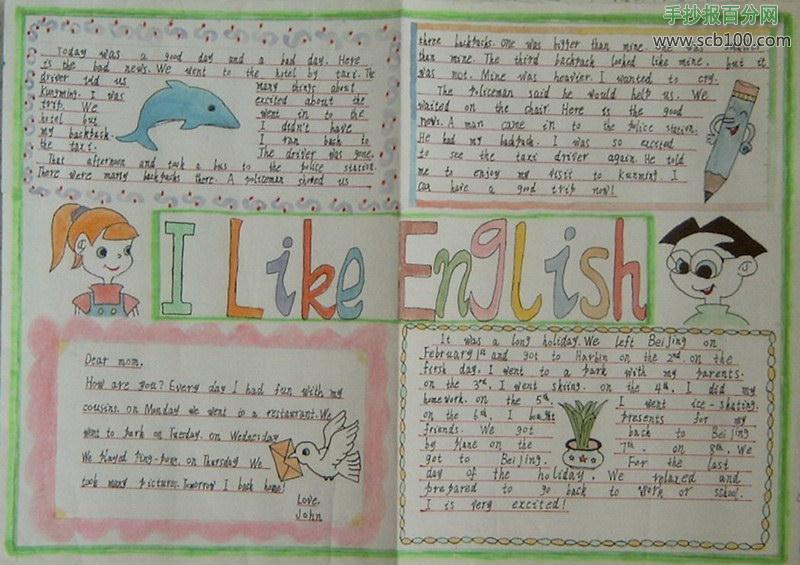 手抄报百分网
www.scb100.com
Today was a good day and a bad day. Here
is the bad news. We went to the hotel by taxi. The
driver told us many things about
Kunming. I was excited about the
trip. We went in to the
hotel but I didn't have
my backpack. I ran back to
the taxi. The driver was gone.
That afternoon and took a bus to the police station.
There were many backpacks there. A policeman showed us
three backpacks. One was bigger than mine.
than mine. The third backpack looked like mine, but it
was not. Mine was heavier. I wanted to cry.
The policeman said he would help us. We
waited on the chair. Here is the good
news. A man came in to the police station.
He had my backpack. I was so excited
to see the taxi driver again. He told
me to enjoy my visit to Kunming. I
can have a good trip now!
I Like English
Dear mom,
How are you? Every day I had fun with my
cousins. on Monday we went to a restaurant. We
went to park on Tuesday. on Wednesday
We played Ping-pong. on Thursday We
took many pictures. Tomorrow I back home!
Love,
John
It was a long holiday. We left Beijing on
February 1st and got to Harbin on the 2nd on the
first day. I went to a park with my parents.
on the 3rd, I went skiing. on the 4th, I did my
homework. on the 5th, I went ice-skating.
on the 6th, I bought presents for my
friends. We got back to Beijing
by plane on the 7th. on 8th, We
got to Beijing. For the last
day of the holiday, We relaxed and
prepared to go back to work or school.
I is very excited!